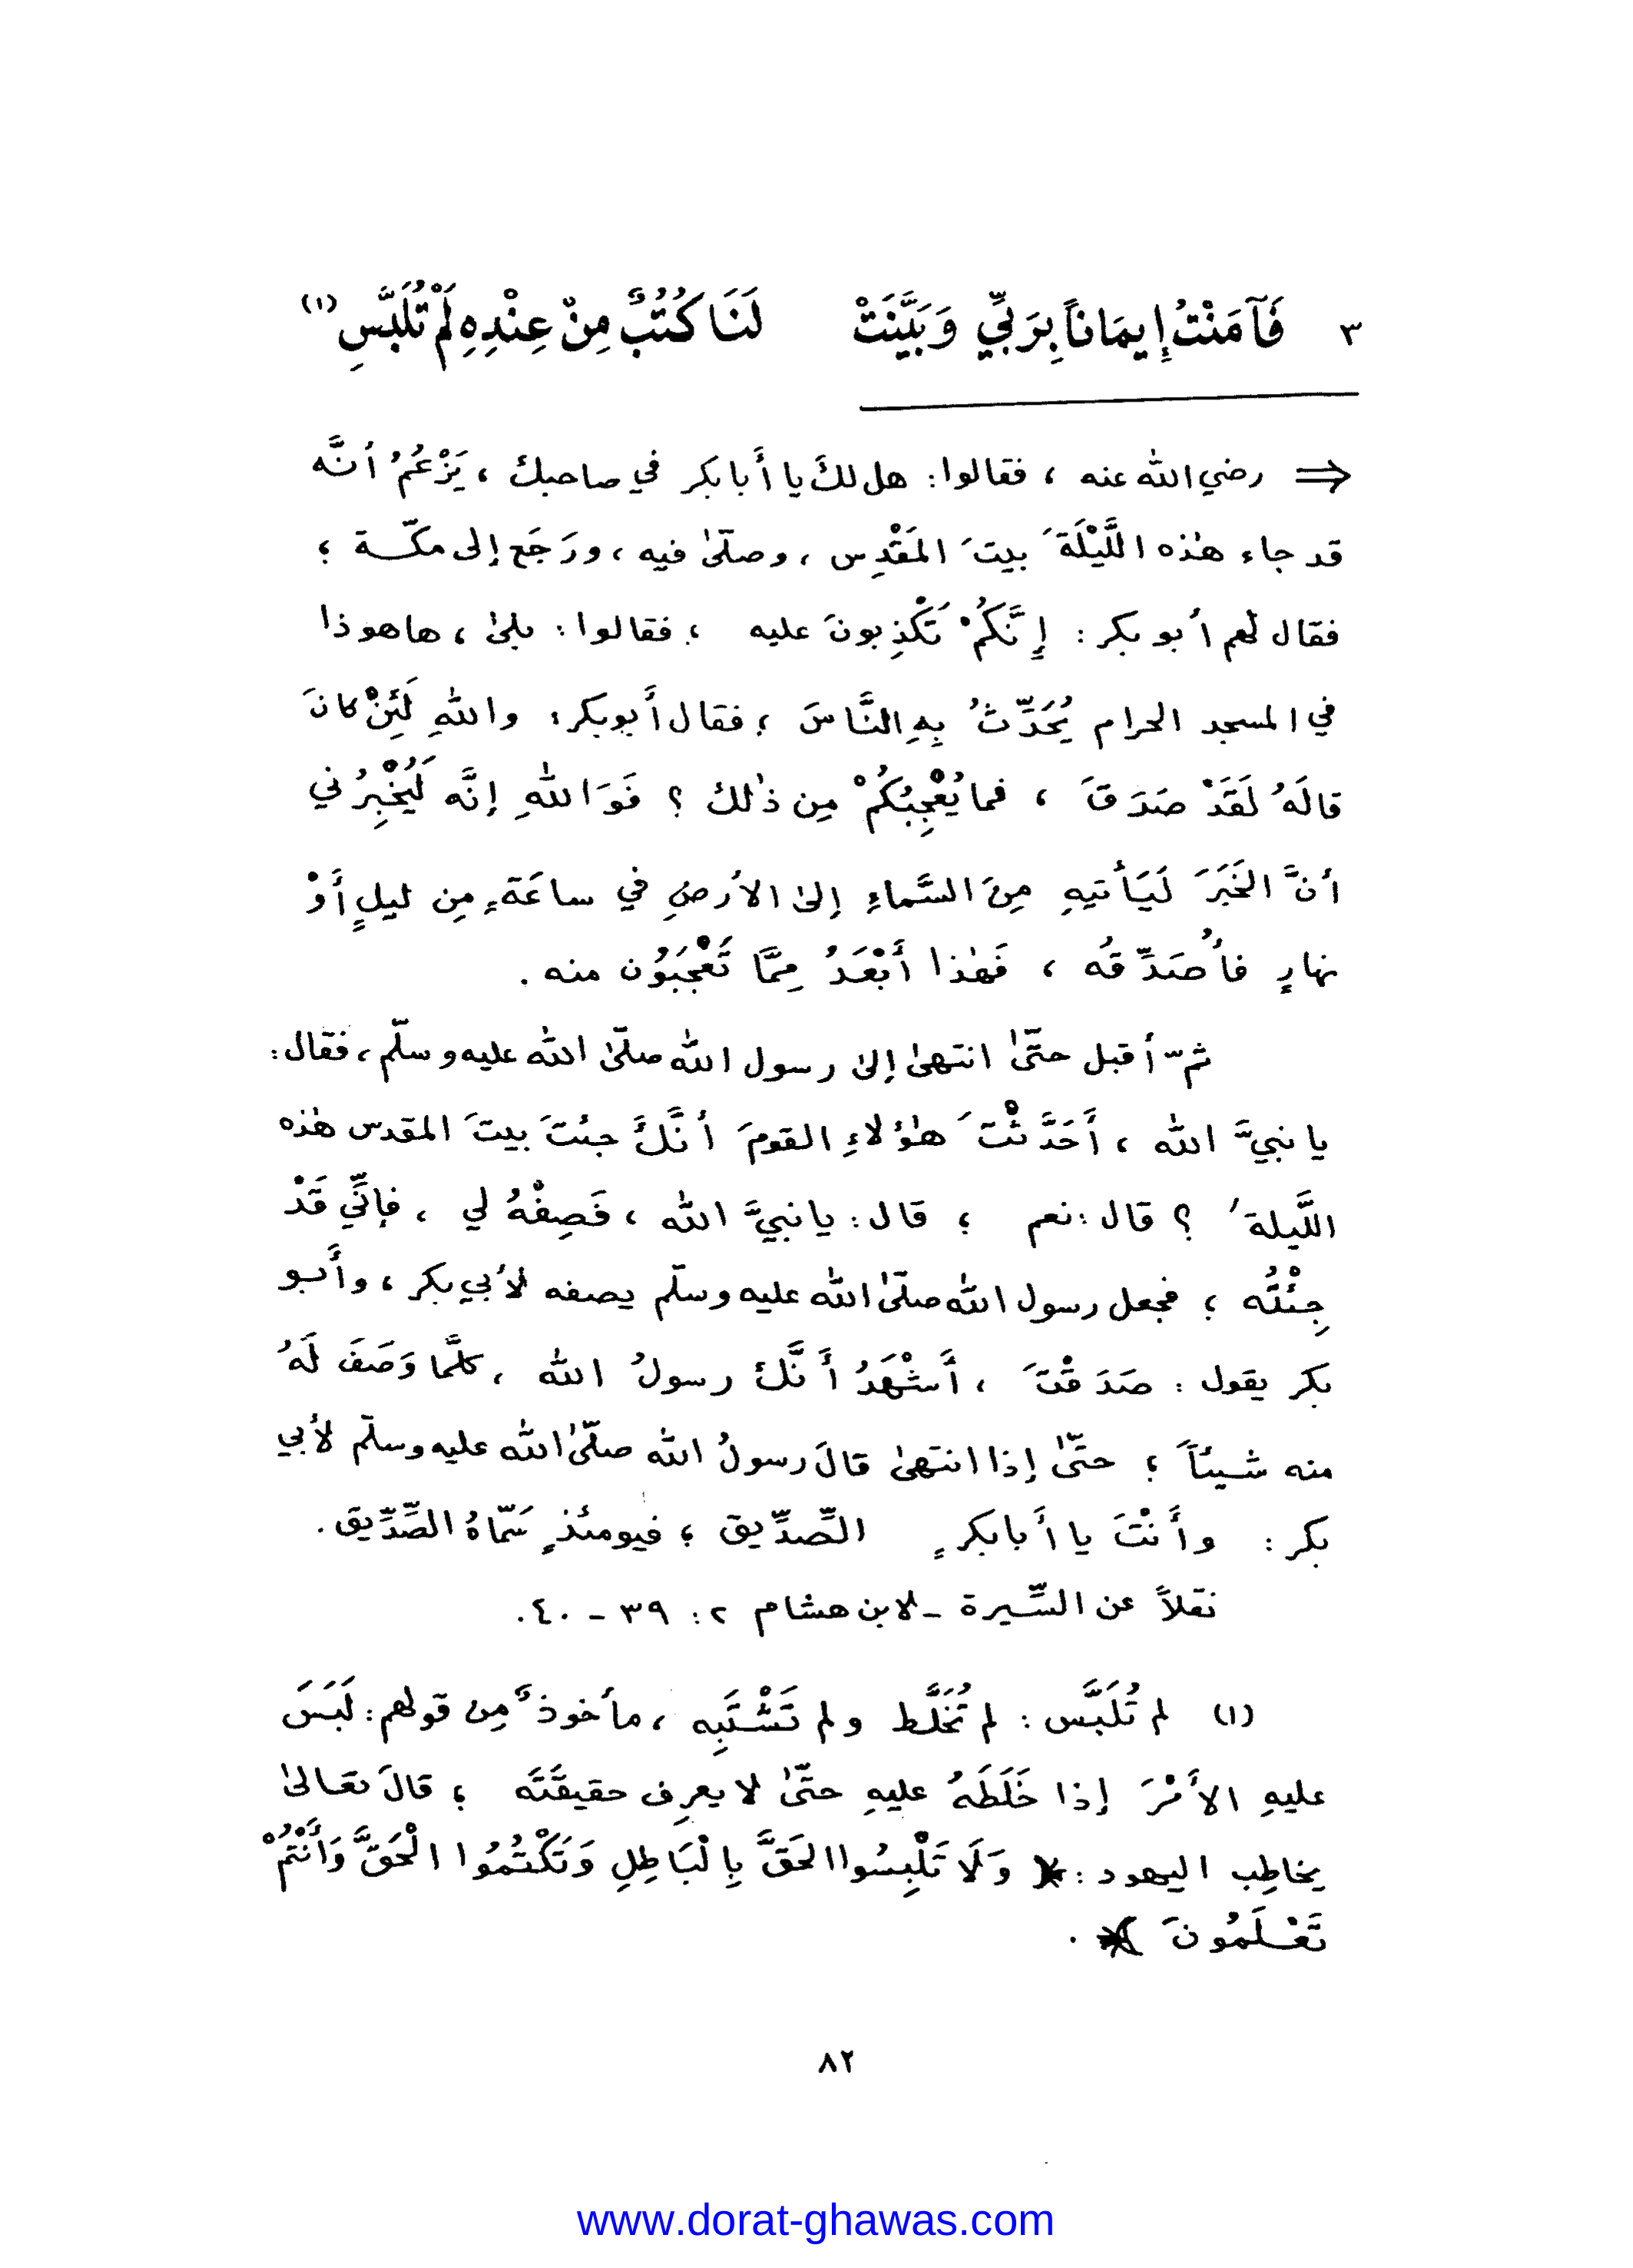 ٣ فَآمَنْتُ إِيمَاناً بِرَبِّي وَبَيَّنَتْ لَنَا كُتُبٌ مِنْ عِنْدِهِ لَمْ تُلَبَّسِ (١)
⇒ رضي الله عنه ، فقالوا : هل لكَ يا أَبا بكر في صاحبك ، يَزْعُمُ أنَّه
قد جاء هٰذه اللَّيْلَةَ بيتَ المَقْدِس ، وصلّىٰ فيه ، ورَجَع إلى مكّة ؛
فقال لهم أبو بكر : إِنَّكُمْ تَكْذِبونَ عليه ؛ فقالوا : بلىٰ ، ها هو ذا
في المسجد الحرام يُحَدِّثُ بِهِ النَّاسَ ؛ فقال أَبو بكر : واللهِ لَئِنْ كانَ
قالَهُ لَقَدْ صَدَقَ ، فما يُعْجِبُكُمْ مِن ذٰلك ؟ فَوَاللهِ إنَّه لَيُخْبِرُني
أنَّ الخَبَرَ لَيَأتيهِ مِنَ السَّماءِ إلىٰ الأرضِ في ساعَةٍ مِن ليلٍ أَوْ
نهارٍ فأُصَدِّقُه ، فَهٰذا أَبْعَدُ مِمَّا تَعْجَبُون منه .
ثمّ أقبل حتّىٰ انتهىٰ إلىٰ رسول الله صلّىٰ الله عليه وسلّم ، فقال :
يا نبيَّ الله ، أَحَدَّثْتَ هٰؤلاءِ القومَ أنَّكَ جئتَ بيتَ المقدس هٰذه
اللَّيلةَ ؟ قال : نعم ؛ قال : يا نبيَّ الله ، فَصِفْهُ لي ، فإنِّي قَدْ
جِئْتُه ؛ فجعل رسول الله صلّىٰ الله عليه وسلّم يصفه لأبي بكر ، وأَبو
بكر يقول : صَدَقْتَ ، أَشْهَدُ أَنَّكَ رسولُ الله ، كلَّما وَصَفَ لَهُ
منه شيئاً ؛ حتّىٰ إذا انتهىٰ قالَ رسولُ الله صلّىٰ الله عليه وسلّم لأبي
بكر : وأَنْتَ يا أَبا بكرٍ الصِّدِّيق ؛ فيومئذٍ سَمّاهُ الصِّدِّيق .
نقلاً عن السِّيرة ـ لابن هشام ٢ : ٣٩ - ٤٠ .
(١) لم تُلَبَّس : لم تُخَلَّط ولم تَشْتَبِه ، مأخوذٌ مِن قولهم : لَبَسَ
عليهِ الأَمْرَ إذا خَلَطَهُ عليهِ حتّىٰ لا يعرِف حقيقَتَه ؛ قالَ تعَالىٰ
يخاطِب اليهود : ﴿ وَلَا تَلْبِسُوا الحَقَّ بِالْبَاطِلِ وَتَكْتُمُوا الْحَقَّ وَأَنْتُمْ
تَعْلَمُونَ ﴾ .
٨٢
www.dorat-ghawas.com